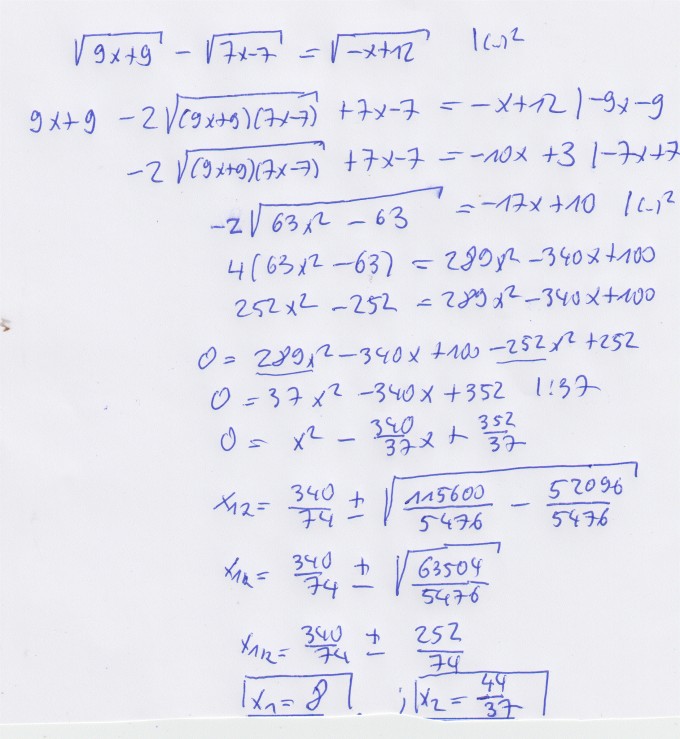 √(9x+9) - √(7x-7) = √(-x+12) |(..)²
9x+9 -2√((9x+9)(7x-7)) +7x-7 = -x+12 |-9x-9
-2√((9x+9)(7x-7)) +7x-7 = -10x +3 |-7x+7
-2√(63x² - 63) = -17x+10 |(..)²
4(63x² -63) = 289x² -340x+100
252x² -252 = 289x² -340x+100
0 = 289x² -340x +100 -252x² +252
0 = 37x² -340x +352 |:37
0 = x² - 340/37 x + 352/37
x₁₂ = 340/74 ± √(115600/5476 - 52096/5476)
x₁₂ = 340/74 ± √(63504/5476)
x₁₂ = 340/74 ± 252/74
x₁ = 8 ; x₂ = 44/37